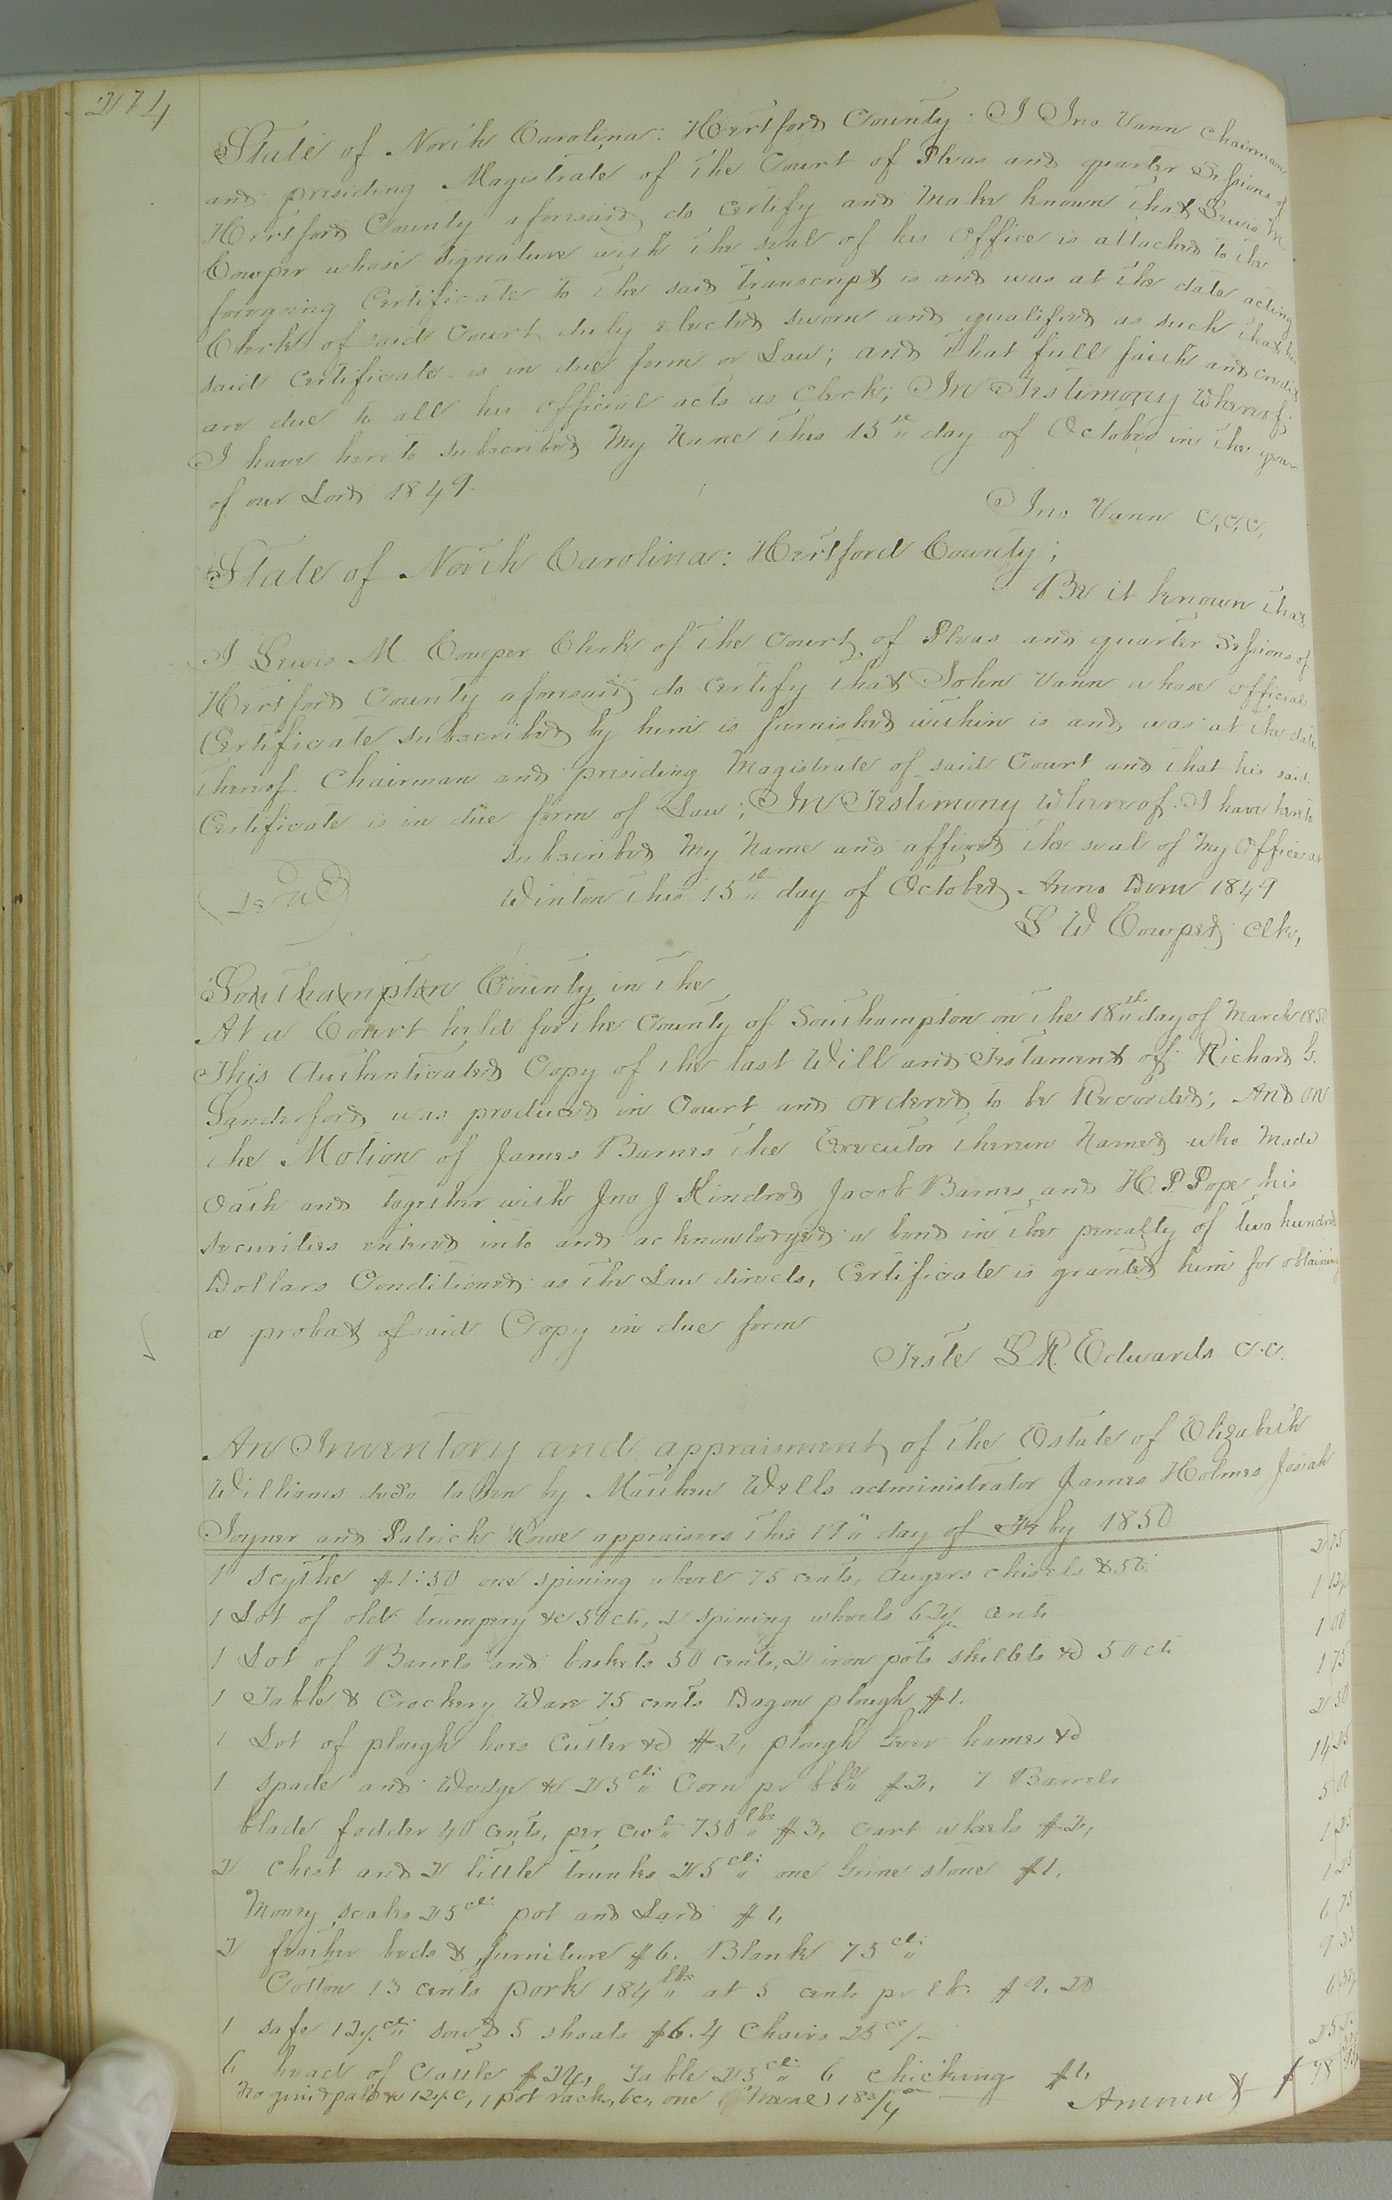 274
State of North Carolina: Hertford County: I Jno Vann Chairman
and presiding Magistrate of the Court of Pleas and quarter Sessions of
Hertford County aforesaid do certify and make known that Lewis M
Cowper whose signature with the seal of his Office is attached to the
foregoing Certificate to the said transcript is and was at the date acting
Clerk of said Court duly elected sworn and qualified as such that his
said certificate is in due form or Law; and that full faith and credit
are due to all his official acts as Clerk; In Testimony Whereof;
I have hereto subscribed My Name this 15th day of October in the year
of our Lord 1849.
Jno Vann C,C,C,
State of North Carolina: Hertford County;
Be it known that
I Lewis M Cowper Clerk of the Court of Pleas and quarter Sessions of
Hertford County aforesaid do certify that John Vann whose official
Certificate subscribed by him is furnished within is and was at the date
thereof Chairman and presiding Magistrate of said Court and that his said
Certificate is in due form of Law; In Testimony Whereof I have hereto
subscribed My Name and affixed the seal of My Office at
Winton this 15th day of October Anno Dom 1849
L W Cowper Clk,
Southampton County in the
At a Court held for the County of Southampton on the 18th day of March 1850
This Authenticated Copy of the last Will and Testament of Richard G.
Sanderford was produced in Court and ordered to be Recorded; And on
the Motion of James Barnes the Executor therein Named who made
Oath and together with Jno J Kindred Jacob Barnes and H P Pope his
securities entered into and acknowledged a bond in the penalty of two hundred
Dollars Conditioned as the Law directs, Certificate is granted him for obtaining
a probat of said Copy in due form
Teste L R. Edwards C.C.
An Inventory and appraisment of the Estate of Elizabeth
Williams decd taken by Mathew Wells administrator James Holmes Josiah
Joyner and Patrick Howe appraisers this 19" day of by 1850
1 Scythe $1:50 one spining wheel 75 cents, Augers chisels &50: 275
1 Lot of old trumpery &c 50 ct, 2 spining wheels 62½ cents 1 12½
1 Lot of Barrels and baskets 50 cents, 2 iron pots skillets &c 50 cts 1 00
1 Table & Crockery Ware 75 cents Dagon plough $1. 1 75
1 Lot of plough hoes Cutter &c $2, plough Gear hames &c 2 50
1 spade and Wedge & 25cts Corn pr bbl $2, 7 Barrels 14 25
blade fodder 40 cents, per Cwt 750 lbs $3, Cart wheels $2, 5 00
2 chest and 2 little trunks 25cts one Grine stone $1. 1 25
Money scales 25cts pot and Lard $1, 1 25
2 feather beds & furniture $6. Blank 75cts 6 75
Cotton 13 cents pork 184 lbs at 5 cents pr lb: $9.20 9 33
1 safe 12½cts sow & 5 shoats $6. 4 Chairs 25cts 6 37½
6 head of Cattle $24, Table 25cts 6 chickings $1, 25 25
pot racks, 6c, one 18¾
Amount $ 78